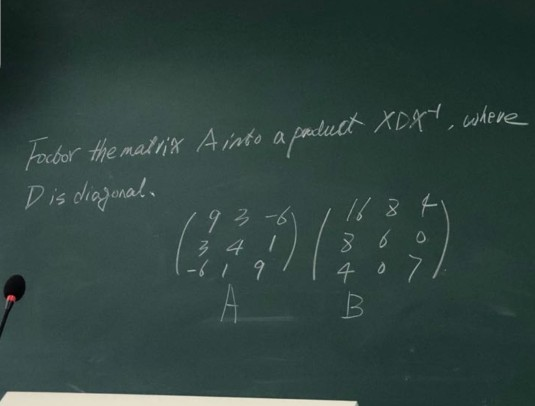 Factor the matrix A into a product XDX⁻¹, where
D is diagonal.
9 3 -6 16 8 4
3 4 1 8 6 0
-6 1 9 4 0 7
A B